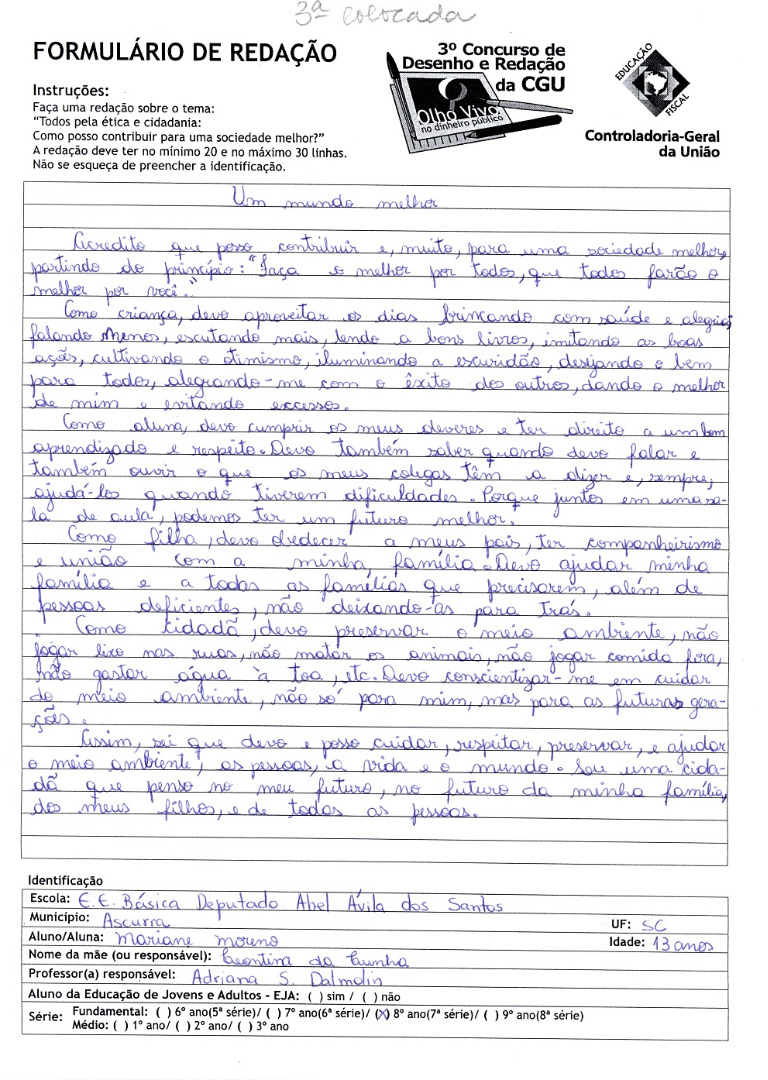 3ª colocada
FORMULÁRIO DE REDAÇÃO
3º Concurso de
Desenho e Redação
da CGU
Olho Vivo
no dinheiro público
EDUCAÇÃO
FISCAL
Controladoria-Geral
da União
Instruções:
Faça uma redação sobre o tema:
“Todos pela ética e cidadania:
Como posso contribuir para uma sociedade melhor?”
A redação deve ter no mínimo 20 e no máximo 30 linhas.
Não se esqueça de preencher a identificação.
Um mundo melhor
Acredito que posso contribuir e, muito, para uma sociedade melhor,
partindo do princípio: "Faça o melhor por todos, que todos farão o
melhor por você."
Como criança, devo aproveitar os dias brincando com saúde e alegria,
falando menos, escutando mais, lendo a bons livros, imitando as boas
ações, cultivando o otimismo, iluminando a escuridão, desejando o bem
para todos, alegrando-me com o êxito dos outros, dando o melhor
de mim e evitando excessos.
Como aluna, devo cumprir os meus deveres e ter direito a um bom
aprendizado e respeito. Devo também saber quando devo falar e
também ouvir o que os meus colegas têm a dizer e, sempre,
ajudá-los quando tiverem dificuldades. Porque juntos em uma sa-
la de aula, podemos ter um futuro melhor.
Como filha, devo obedecer a meus pais, ter companheirismo
e união com a minha família. Devo ajudar minha
família e a todas as famílias que precisarem, além de
pessoas deficientes, não deixando-as para trás.
Como cidadã, devo preservar o meio ambiente, não
jogar lixo nas ruas, não matar os animais, não jogar comida fora,
não gastar água à toa, etc. Devo conscientizar-me em cuidar
do meio ambiente, não só para mim, mas para as futuras gera-
ções.
Assim, sei que devo e posso cuidar, respeitar, preservar, e ajudar
o meio ambiente, as pessoas, a vida e o mundo. Sou uma cida-
dã que penso no meu futuro, no futuro da minha família,
dos meus filhos, e de todas as pessoas.
Identificação
Escola: E.E. Básica Deputado Abel Ávila dos Santos
Município: Ascurra UF: SC
Aluno/Aluna: Mariane moreno Idade: 13 anos
Nome da mãe (ou responsável): Leontina da Cunha
Professor(a) responsável: Adriana S. Dalmolin
Aluno da Educação de Jovens e Adultos - EJA: ( ) sim / ( ) não
Série: Fundamental: ( ) 6º ano(5ª série)/ ( ) 7º ano(6ª série)/ (X) 8º ano(7ª série)/ ( ) 9º ano(8ª série)
Médio: ( ) 1º ano/ ( ) 2º ano/ ( ) 3º ano